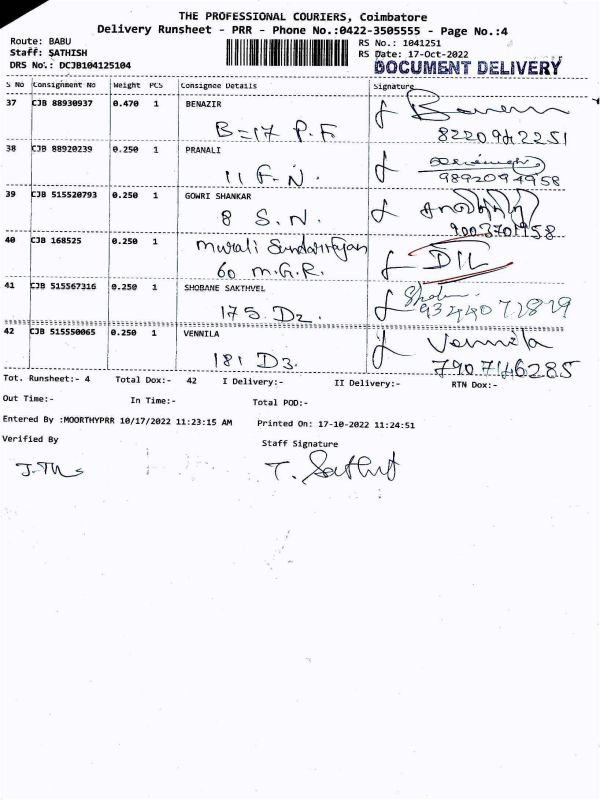 THE PROFESSIONAL COURIERS, Coimbatore
Delivery Runsheet - PRR - Phone No.:0422-3505555 - Page No.:4
Route: BABU RS No.: 1041251
Staff: SATHISH RS Date: 17-Oct-2022
DRS No.: DCJB104125104 DOCUMENT DELIVERY
S No Consignment No Weight PCS Consignee Details Signature
37 CJB 88930937 0.470 1 BENAZIR
B=17 P.F. 8220942251
38 CJB 88920239 0.250 1 PRANALI
11 F.N. 9892094958
39 CJB 515520793 0.250 1 GOWRI SHANKAR
8 S.N. 9003701958
40 CJB 168525 0.250 1 Murali
60 M.G.R. DIL
41 CJB 515567316 0.250 1 SHOBANE SAKTHVEL
175 D2.
42 CJB 515550065 0.250 1 VENNILA Vennila
181 D3. 790746285
Tot. Runsheet:- 4 Total Dox:- 42 I Delivery:- II Delivery:- RTN Dox:-
Out Time:- In Time:- Total POD:-
Entered By :MOORTHYPRR 10/17/2022 11:23:15 AM Printed On: 17-10-2022 11:24:51
Verified By Staff Signature
T. Sathish